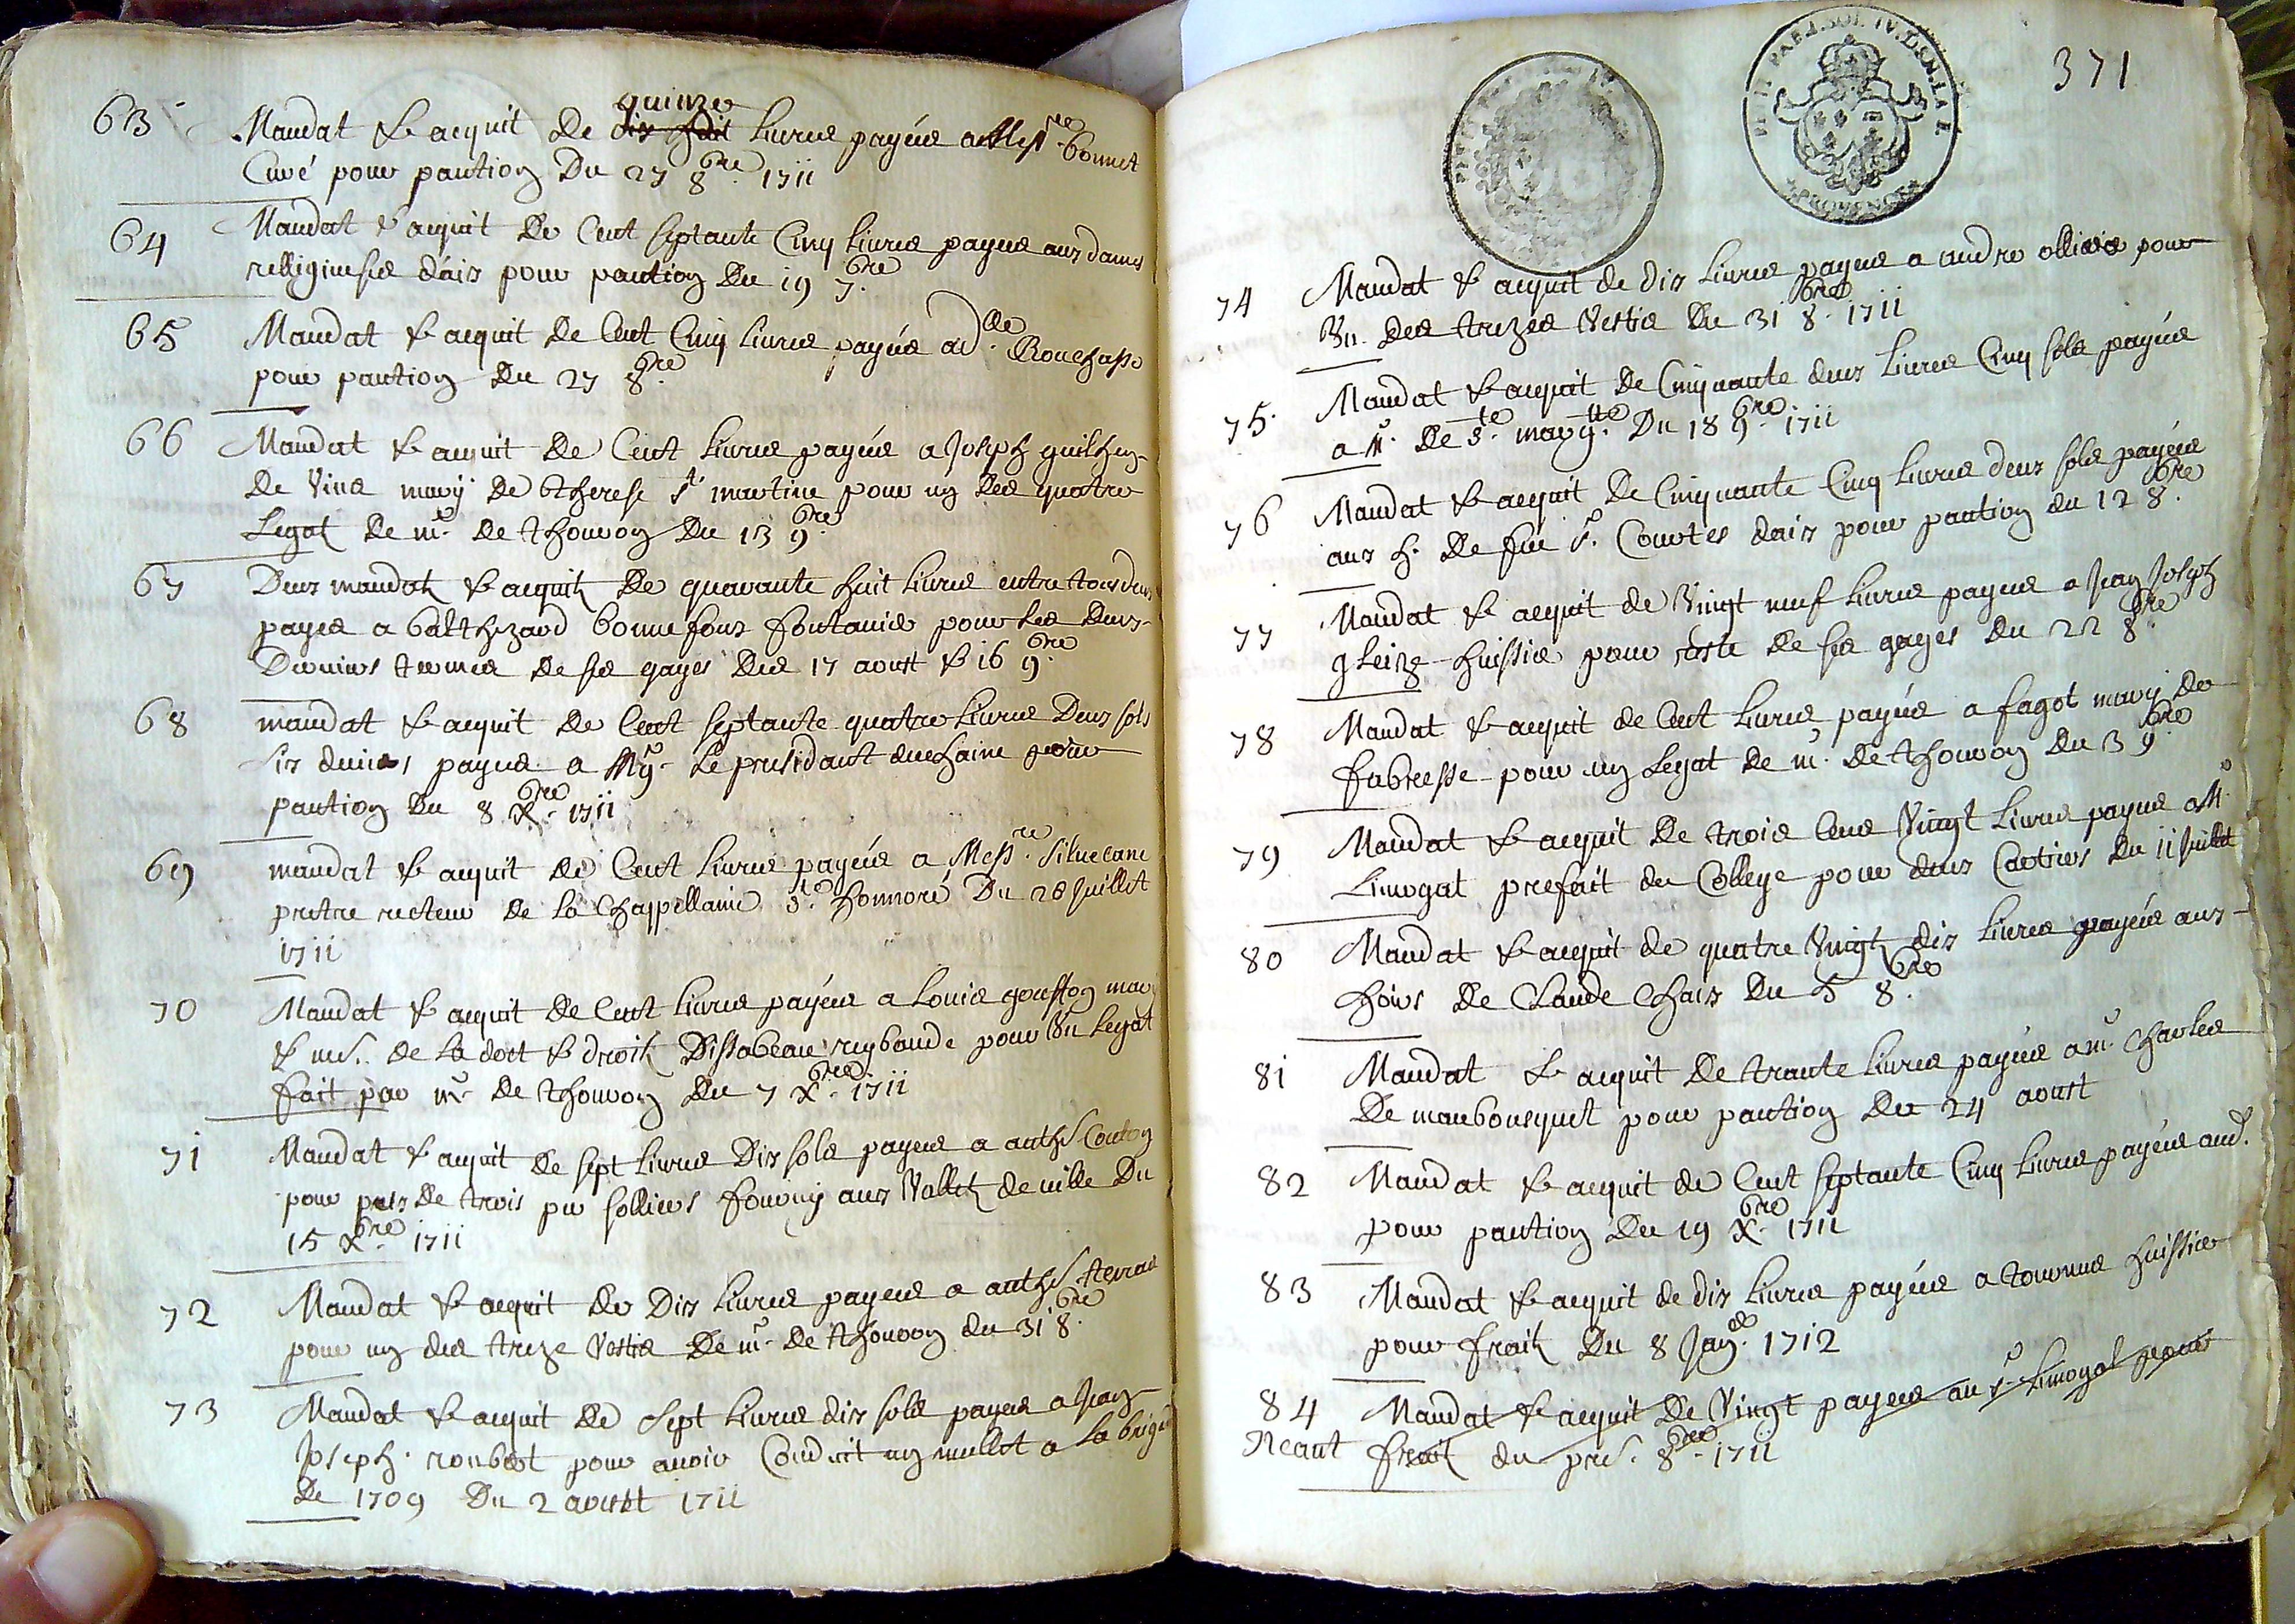 63 Mandat & acquit de quinze dix huit livres payées a Messre bonnet
Curé pour pantion Du 27 8bre 1711
64 Mandat & acquit De Cent septante Cinq livres payees aux dames
relligieuses daix pour pantion Du 19 7bre
65 Mandat & acquit de Cent Cinq livres payées a dlle Rouchasse
pour pantion Du 27 8bre
66 Mandat & acquit De Cent livres payées a Joseph guilhen
De Vins mary De therese st martine pour un des quatre
Legat De mr De thouron Du 13 9bre
67 Deux mandats & acquits De quarante huit livres entre tous deux
payes a balthezard bonnefoux fontanier pour les deux
Derniers termes de ses gages des 17 aoust & 16 9bre
68 mandat & acquit De Cent septante quatre livres Deux sols
six deniers payées a Mgr Le presidant duchaine pour
pantion Du 8 Xbre 1711
69 mandat & acquit De Cent livres payées a Messre Siluecane
pretre recteur De la Chappellanie St honnoré Du 28 Juillet
1711
70 Mandat & acquit De Cent livres payées a Louis gouffon mary
& me De la dot & droits Dissabeau reybaude pour Un Legat
fait par mr De thouron Du 7 Xbre 1711
71 Mandat & acquit De sept livres Dix sols payées a anthe Couton
pour prix De trois pr solliers fourny aux Vallets de ville Du
15 Xbre 1711
72 Mandat & acquit De Dix livres payées a anthe
pour un des treze Vestis De mr De thouron du 31 8bre
73 Mandat & acquit De Sept livres dix sols payées a Jean
Joseph roubert pour avoir Conduit un mullet a la brigue
De 1709 Du 2 aoust 1711
371
PROVENCE
74 Mandat & acquit de dix livres payées a andre ollivier pour
Un Des trezes Vestis Du 31 8bre 1711
75 Mandat & acquit De Cinquante deux livres Cinq sols payées
a Mr De Ste margte Du 18 9bre 1711
76 Mandat & acquit De Cinquante Cinq livres deux sols payées
aux h. De feu Sr Courtes daix pour pantion du 12 8bre
77 Mandat & acquit de Vingt neuf livres payées a Jean Joseph
gleize huissier pour reste de ses gages du 22 8bre
78 Mandat & acquit de Cent livres payées a fagot mary de
fabresse pour un Legat De mr De thouron Du 3 9bre
79 Mandat & acquit De trois Cens Vingt livres payées a Mr
Limogat prefait du College pour deux Cartiers Du 11 Juillet
80 Mandat & acquit de quatre Vingts dix livres payées aux
hoirs De Claude Chaix Du 5 8bre
81 Mandat & acquit De trante livres payées a mr Charles
De maubousquet pour pantion Du 24 aoust
82 Mandat & acquit de Cent septante Cinq livres payées aud.
pour pantion Du 19 Xbre 1711
83 Mandat & acquit de dix livres payées a tournes huissier
pour frais Du 8 Janer 1712
84 Mandat & acquit De Vingt payees au Sr Limogat pour
Neant frait du pre. 8bre 1711